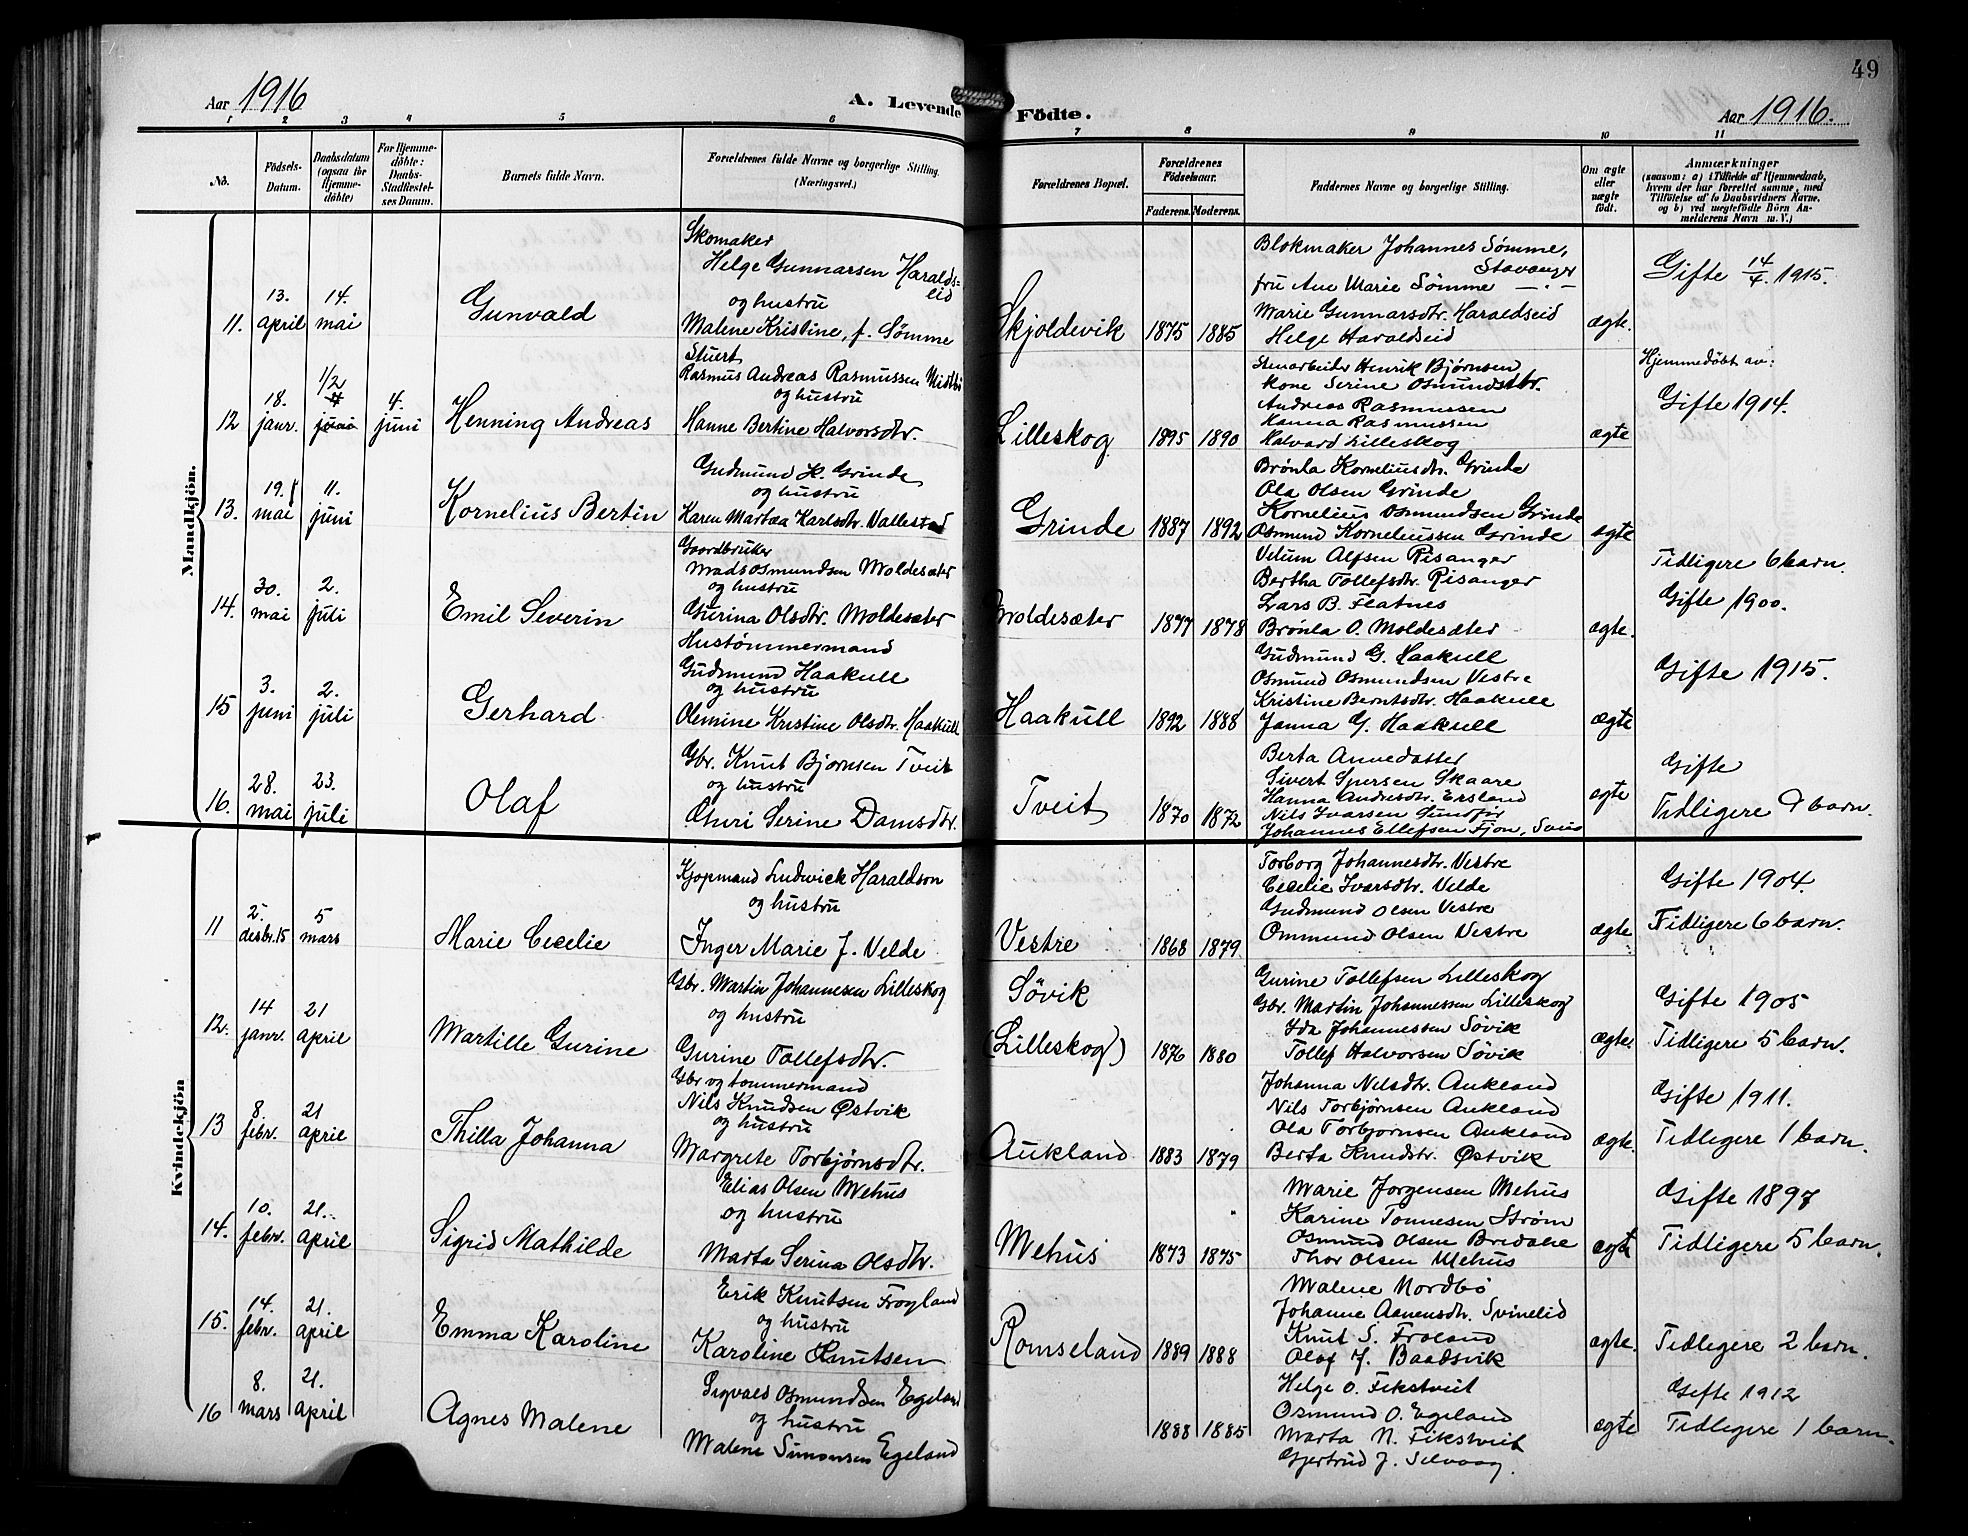 49
Aar 1916
A. Levende Födte.
Aar 1916.
1 2 3 4 5 6 7 8 9 10 11
No.
Födsels-Datum.
Daabsdatum (ogsaa for Hjemme-döbte)
For Hjemme-döbte: Daabs-Stadfæstel-ses Datum.
Barnets fulde Navn.
Forældrenes fulde Navne og borgerlige Stilling. (Næringsvei.)
Forældrenes Bopæl.
Forældrenes Födselsaar.
Faderens. Moderens.
Faddernes Navne og borgerlige Stilling.
Om ægte eller uægte födt.
Anmærkninger
(saasom: a) i Tilfælde af Hjemmedaab, hvem der har forrettet samme, med Tilföielse af to Daabsvidners Navne, og b) ved uegtefödte Börn An-melderens Navn m. V.)
Mandkjön.
11. 13. april 14. mai
Gunvald
Skomaker
Helge Gunnarsen Haralds=eid
og hustru
Malene Kristine, f. Sømme
Skjoldevik 1875 1885
Blokmaker Johannes Sømme, Stavanger
fru Ane Marie Sømme — " —
Marie Gunnarsdtr. Haraldseid
Helge Haraldseid
ægte.
Gifte 14/4 1915.
12 18. janr. 1/2 juni 4. juni
Henning Andreas
Stuert
Rasmus Andreas Rasmussen Midtbø
og hustru
Hanne Bertine Halvorsdtr.
Lilleskog 1895 1890
Stenarbeider Henrik Bjørnsen
kone Serine Osmundsdtr.
Andreas Rasmussen
Hanna Rasmussen
Halvard Lilleskog
ægte
Hjemmedøbt av:
Gifte 1914.
13. 19. mai 11. juni
Kornelius Bertin
Gudmund H. Grinde
og hustru
Karen Martea Karlsdtr. Vallestad
Grinde 1887 1892
Brønla Korneliusdtr. Grinde
Ola Olsen Grinde
Kornelius Osmundsen Grinde
Osmund Korneliussen Grinde
ægte
14. 30. mai 2. juli
Emil Severin
Gaardbruker
Mads Osmundsen Moldesæter
og hustru
Gurina Olsdtr. Moldesæter
Moldesæter 1877 1878
Velum Alfsen Risanger
Bertha Tollefsdtr. Risanger
Lars B. Flatnes
Brønla O. Moldesæter
ægte.
Tidligere 6 barn.
Gifte 1900.
15 3. juni 2. juli
Gerhard
Hustømmermand
Gudmund Haakull
og hustru
Olemine Kristine Olsdtr. Haakull
Haakull 1892 1888
Gudmund G. Haakull
Osmund Osmundsen Vestre
Kristine Berntsdtr. Haakull
Janna G. Haakull
ægte
Gifte 1915.
16. 28. mai 23. juli
Olaf
Gbr. Knut Bjørnsen Tveit
og hustru
Guri Serine Damsdtr.
Tveit 1870 1872
Berta Annedatter
Sivert Sjursen Skaare
Hanna Andresdtr. Ersland
Nils Ivarsen Sundfør
Johannes Ellefsen Fjon, Sveio
ægte
Gifte
Tidligere 9 barn.
Kvindekjön
11 2. desbr. 15 5 mars
Marie Cecelie
Kjøpmand Ludwick Haraldson
og hustru
Inger Marie J. Velde
Vestre 1868 1879
Torborg Johannesdtr. Vestre
Cecelie Ivarsdtr. Velde
Gudmund Olsen Vestre
Ommund Olsen Vestre
ægte
Gifte 1904.
Tidligere 6 barn.
12. 14 janr. 21 april
Martille Gurine
Gbr. Martin Johannesen Lilleskog
og hustru
Gurine Tollefsdtr.
Søvik
(Lilleskog) 1876 1880
Gurine Tollefsen Lilleskog
Gbr. Martin Johannessen Lilleskog
Ida Johannessen Søvik
Tollef Halvorsen Søvik
ægte.
Gifte 1905
Tidligere 5 barn.
13 8. febr. 21 april
Thilla Johanna
Gbr og tømmermand
Nils Knudsen Østvik
og hustru
Margrete Torbjørnsdtr.
Aukland 1883 1879
Johanna Nilsdtr. Aukland
Nils Torbjørnsen Aukland
Ola Torbjornsen Aukland
Berta Knudstr. Østvik
ægte.
Gifte 1911.
Tidligere 1 barn.
14. 10. febr. 21. april
Sigrid Mathilde
Elias Olsen Mehus
og hustru
Marta Serina Olsdtr.
Mehus 1873 1875
Marie Jorgensen Mehus
Karine Tonnesen Strøm
Osmund Olsen Bredalie
Thor Olsen Mehus
ægte
Gifte 1897
Tidligere 5 barn.
15. 14. febr. 21. april
Emma Karoline
Erik Knutsen Frogland
og hustru
Karoline Knutsen
Romseland 1889 1888
Malene Nordbø
Johanne Aanensdtr. Svinelid
Knut S. Froland
Olaf J. Baadsvik
ægte.
Tidligere 2 barn.
16 8. mars 21. april
Agnes Malene
Sigvald Osmundsen Egeland
og hustru
Malene Simonsen Egeland
1888 1885
Helge O. Fikstveit
Osmund O. Egeland
Marta N. Fikstveit
Gjertrud J. Selvaag.
ægte
Gifte 1912
Tidligere 1 barn.